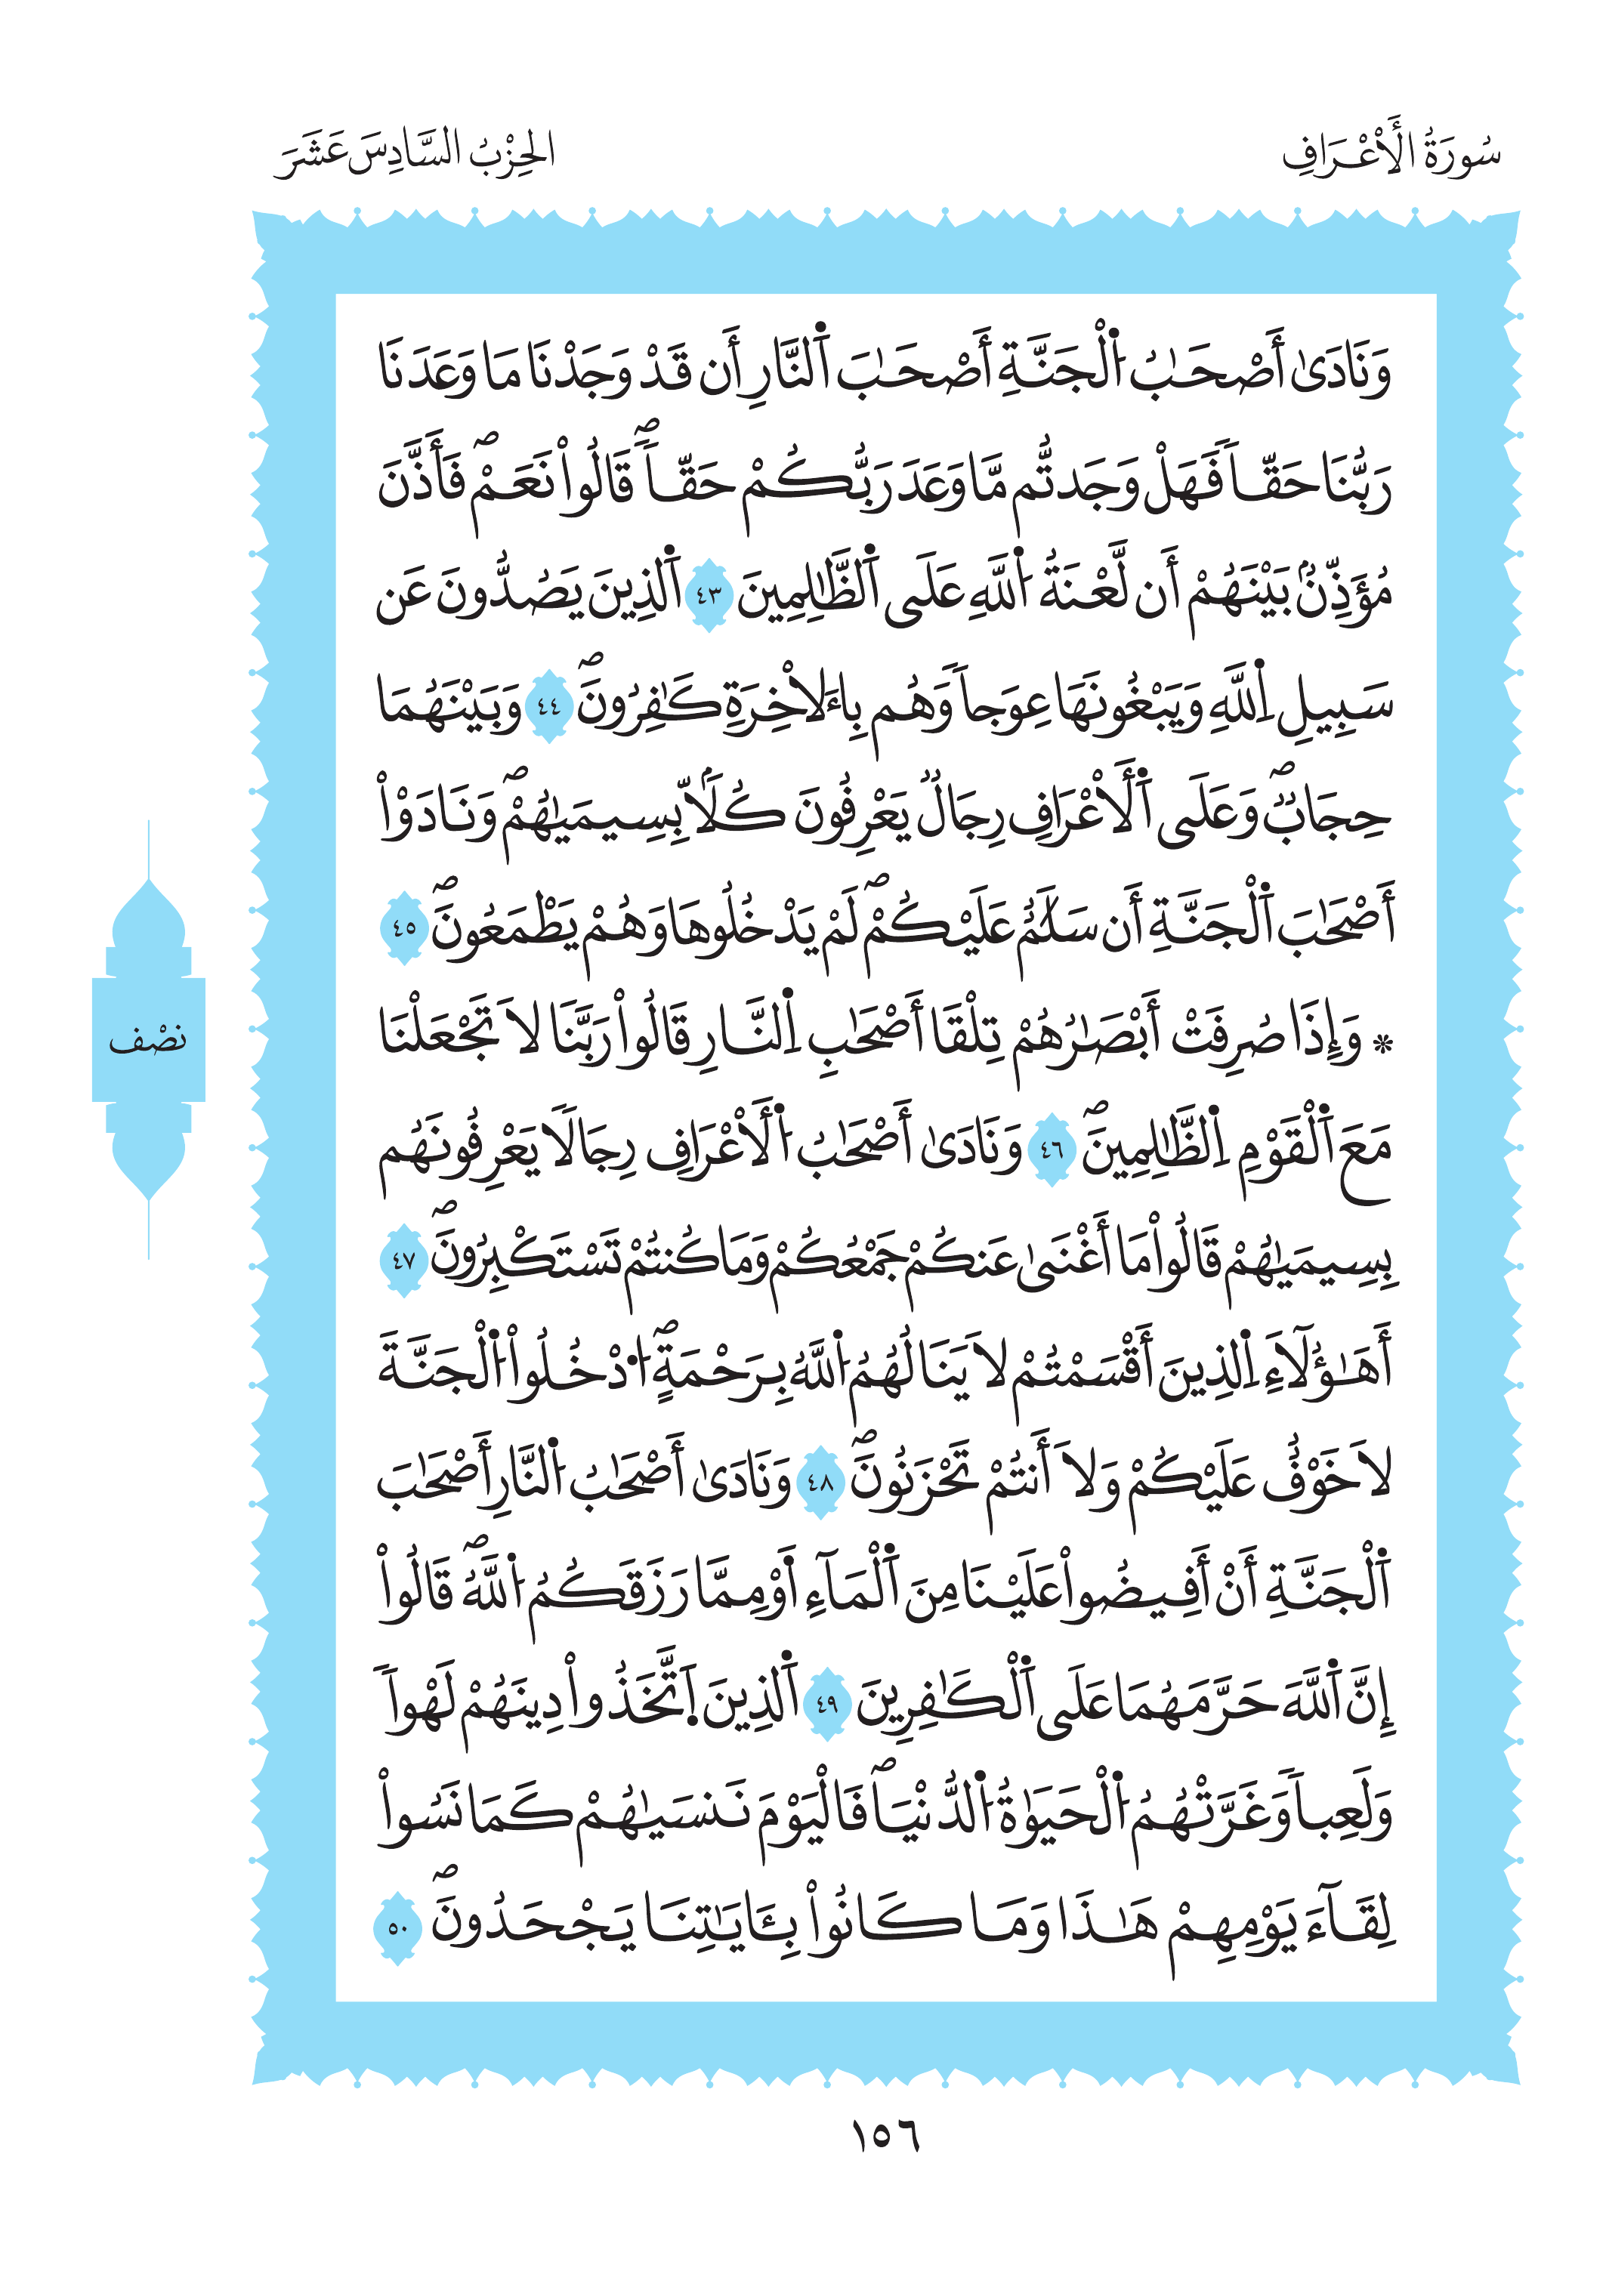 سُورَةُ الْأَعْرَافِ
الحِزْبُ السَّادِسَ عَشَرَ
وَنَادَىٰ أَصْحَـٰبُ اُ۬لْجَنَّةِ أَصْحَـٰبَ اَ۬لنَّارِ أَن قَدْ وَجَدْنَا مَا وَعَدَنَا
رَبُّنَا حَقّاٗ فَهَلْ وَجَدتُّم مَّا وَعَدَ رَبُّكُمْ حَقّاٗۖ قَالُواْ نَعَمْۖ فَأَذَّنَ
مُؤَذِّنُۢ بَيْنَهُمْ أَن لَّعْنَةُ اُ۬للَّهِ عَلَى اَ۬لظَّـٰلِمِينَ ٤٣ اَ۬لذِينَ يَصُدُّونَ عَن
سَبِيلِ اِ۬للَّهِ وَيَبْغُونَهَا عِوَجاٗ وَهُم بِالَاخِرَةِ كَـٰفِرُونَۖ ٤٤ وَبَيْنَهُمَا
حِجَابٞۖ وَعَلَى اَ۬لْأَعْرَافِ رِجَالٞ يَعْرِفُونَ كُلّاَۢ بِسِيمَيٰهُمْۖ وَنَادَوْاْ
أَصْحَـٰبَ اَ۬لْجَنَّةِ أَن سَلَـٰمٌ عَلَيْكُمْۖ لَمْ يَدْخُلُوهَا وَهُمْ يَطْمَعُونَۖ ٤٥
* وَإِذَا صُرِفَتْ أَبْصَـٰرُهُمْ تِلْقَا أَصْحَـٰبِ اِ۬لنَّارِ قَالُواْ رَبَّنَا لَا تَجْعَلْنَا
نصْف
مَعَ اَ۬لْقَوْمِ اِ۬لظَّـٰلِمِينَۖ ٤٦ وَنَادَىٰ أَصْحَـٰبُ اُ۬لْأَعْرَافِ رِجَالاٗ يَعْرِفُونَهُم
بِسِيمَيٰهُمْ قَالُواْ مَا أَغْنَىٰ عَنكُمْ جَمْعُكُمْ وَمَا كُنتُمْ تَسْتَكْبِرُونَۖ ٤٧
أَهَـٰؤُلَآءِ اِ۬لذِينَ أَقْسَمْتُمْ لَا يَنَالُهُمُ اُ۬للَّهُ بِرَحْمَةٍۖ اُ۟دْخُلُواْ اُ۬لْجَنَّةَ
لَا خَوْفٌ عَلَيْكُمْ وَلَا أَنتُمْ تَحْزَنُونَۖ ٤٨ وَنَادَىٰ أَصْحَـٰبُ اُ۬لنَّارِ أَصْحَـٰبَ
اَ۬لْجَنَّةِ أَنْ أَفِيضُواْ عَلَيْنَا مِنَ اَ۬لْمَآءِ اَ۬وْ مِمَّا رَزَقَكُمُ اُ۬للَّهُۖ قَالُواْ
إِنَّ اَ۬للَّهَ حَرَّمَهُمَا عَلَى اَ۬لْكَـٰفِرِينَ ٤٩ اَ۬لذِينَ اَ۪تَّخَذُواْ دِينَهُمْ لَهْواٗ
وَلَعِباٗ وَغَرَّتْهُمُ اُ۬لْحَيَوٰةُ اُ۬لدُّنْيَاۖ فَالْيَوْمَ نَنسَيٰهُمْ كَمَا نَسُواْ
لِقَآءَ يَوْمِهِمْ هَـٰذَا وَمَا كَانُواْ بِـَٔايَـٰتِنَا يَجْحَدُونَۖ ٥٠
١٥٦